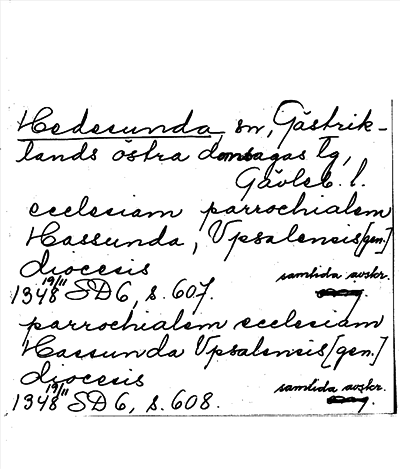 Hedesunda, sn, Gästrik-
lands östra domsagas tg,
Gävleb. l.
ecclesiam parrochialem
Hassunda, Upsalensis [gen.]
diocesis
samtida avskr.
1348 19/11 SD 6, s. 607.
parrochialem ecclesiam
Hassunda Upsalensis [gen.]
diocesis
samtida avskr.
1348 19/11 SD 6, s. 608.